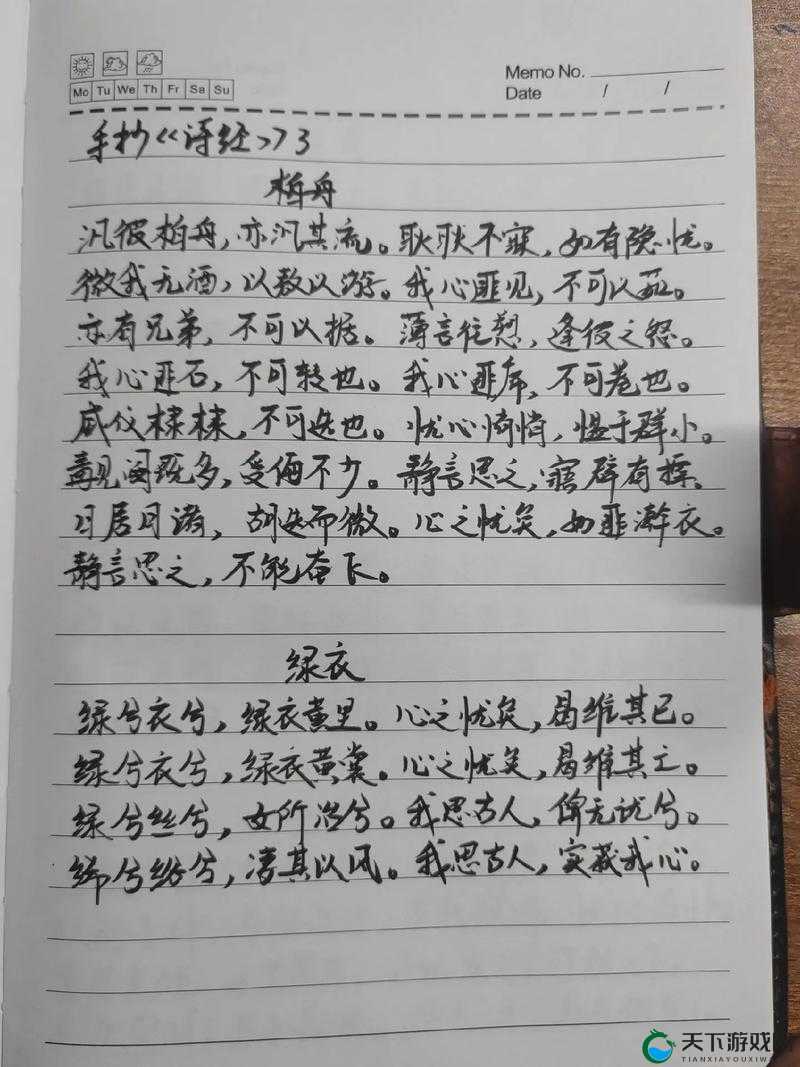 Mo Tu We Th Fr Sa Su
Memo No.
Date / /
手抄《诗经》73
柏舟
汎彼柏舟，亦汎其流。耿耿不寐，如有隐忧。
微我无酒，以敖以游。我心匪见，不可以茹。
亦有兄弟，不可以据。薄言往愬，逢彼之怒。
我心匪石，不可转也。我心匪席，不可卷也。
威仪棣棣，不可选也。忧心悄悄，愠于群小。
觏闵既多，受侮不少。静言思之，寤辟有摽。
日居月诸，胡迭而微。心之忧矣，如匪澣衣。
静言思之，不能奋飞。
绿衣
绿兮衣兮，绿衣黄里。心之忧矣，曷维其已。
绿兮衣兮，绿衣黄裳。心之忧矣，曷维其亡。
绿兮丝兮，女所治兮。我思古人，俾无訧兮。
絺兮绤兮，凄其以风。我思古人，实获我心。
天下游戏
TIANXIAYOUXIW